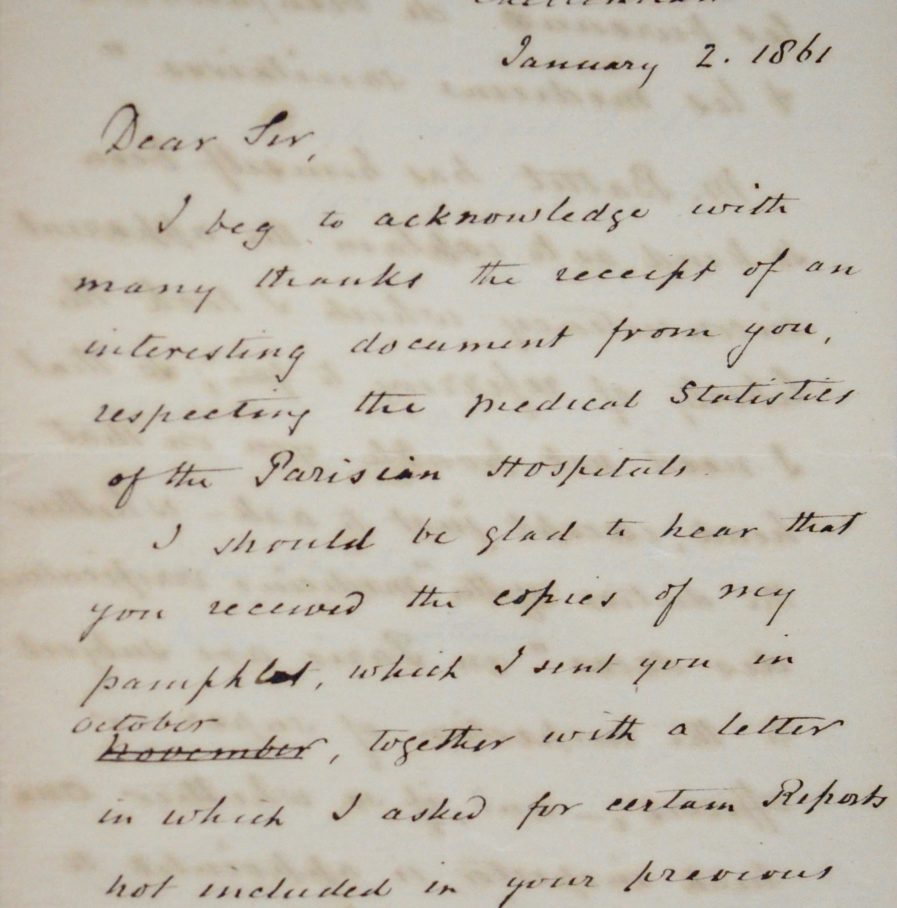 January 2. 1861
Dear Sir,
I beg to acknowledge with
many thanks the receipt of an
interesting document from you,
respecting the Medical Statistics
of the Parisian Hospitals.
I should be glad to hear that
you received the copies of my
pamphlet, which I sent you in
October
November, together with a letter
in which I asked for certain Reports
not included in your previous